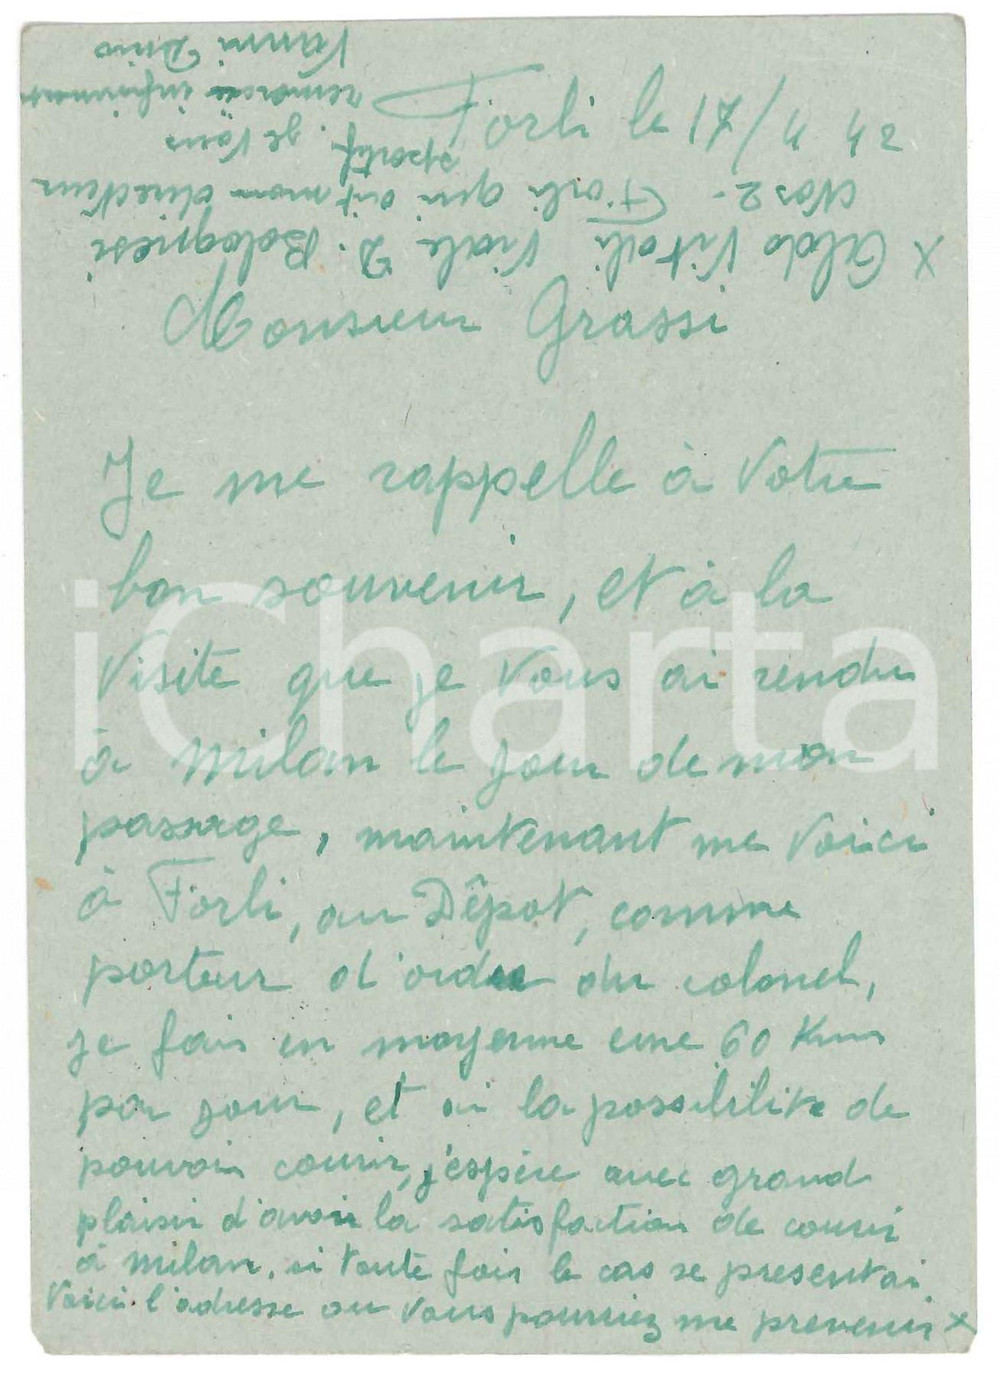 Forli le 17/4 42
Monsieur Grassi
Je me rappelle à Votre
bon souvenir, et à la
Visite que je Vous ai rendu
à Milan le jour de mon
passage, maintenant me Voici
à Forli, au Dêpot, comme
porteur d'ordre du colonel,
je fais en moyenne une 60 Kms
par jour, et ai la possibilité de
pouvoir courir, j'espère avec grand
plaisir d'avoir la satisfaction de courir
à Milan, si toute fois le cas se presentai
Voici l'adresse ou Vous pourriez me prevenir x
x Aldo Vitali Viale D. Bolognesi
No 52 - Forli qui est mon directeur
sportif. je Vous
remercie infiniment
Vanni Dino
iCharta